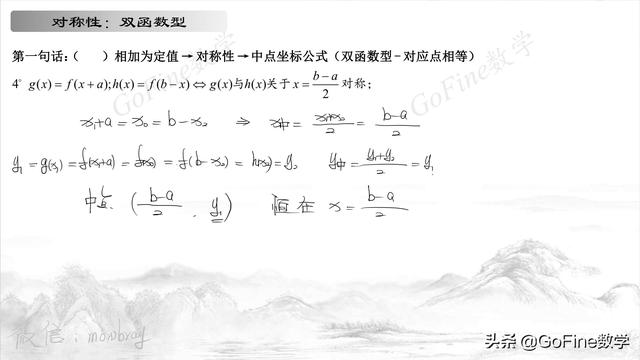 对称性：双函数型
第一句话：（　）相加为定值→对称性→中点坐标公式（双函数型-对应点相等）
4° g(x) = f(x+a); h(x) = f(b-x) ⇔ g(x)与h(x)关于 x = (b-a)/2 对称；
x₁+a = x₀ = b-x₂ ⇒ x中 = (x₁+x₂)/2 = (b-a)/2
y₁ = g(x₁) = f(x₁+a) = f(x₀) = f(b-x₂) = h(x₂) = y₂ y中 = (y₁+y₂)/2 = y₁
中点 ((b-a)/2, y₁) 恒在 x = (b-a)/2
GoFine数学
GoFine数学
微信：monbray
头条 @GoFine数学